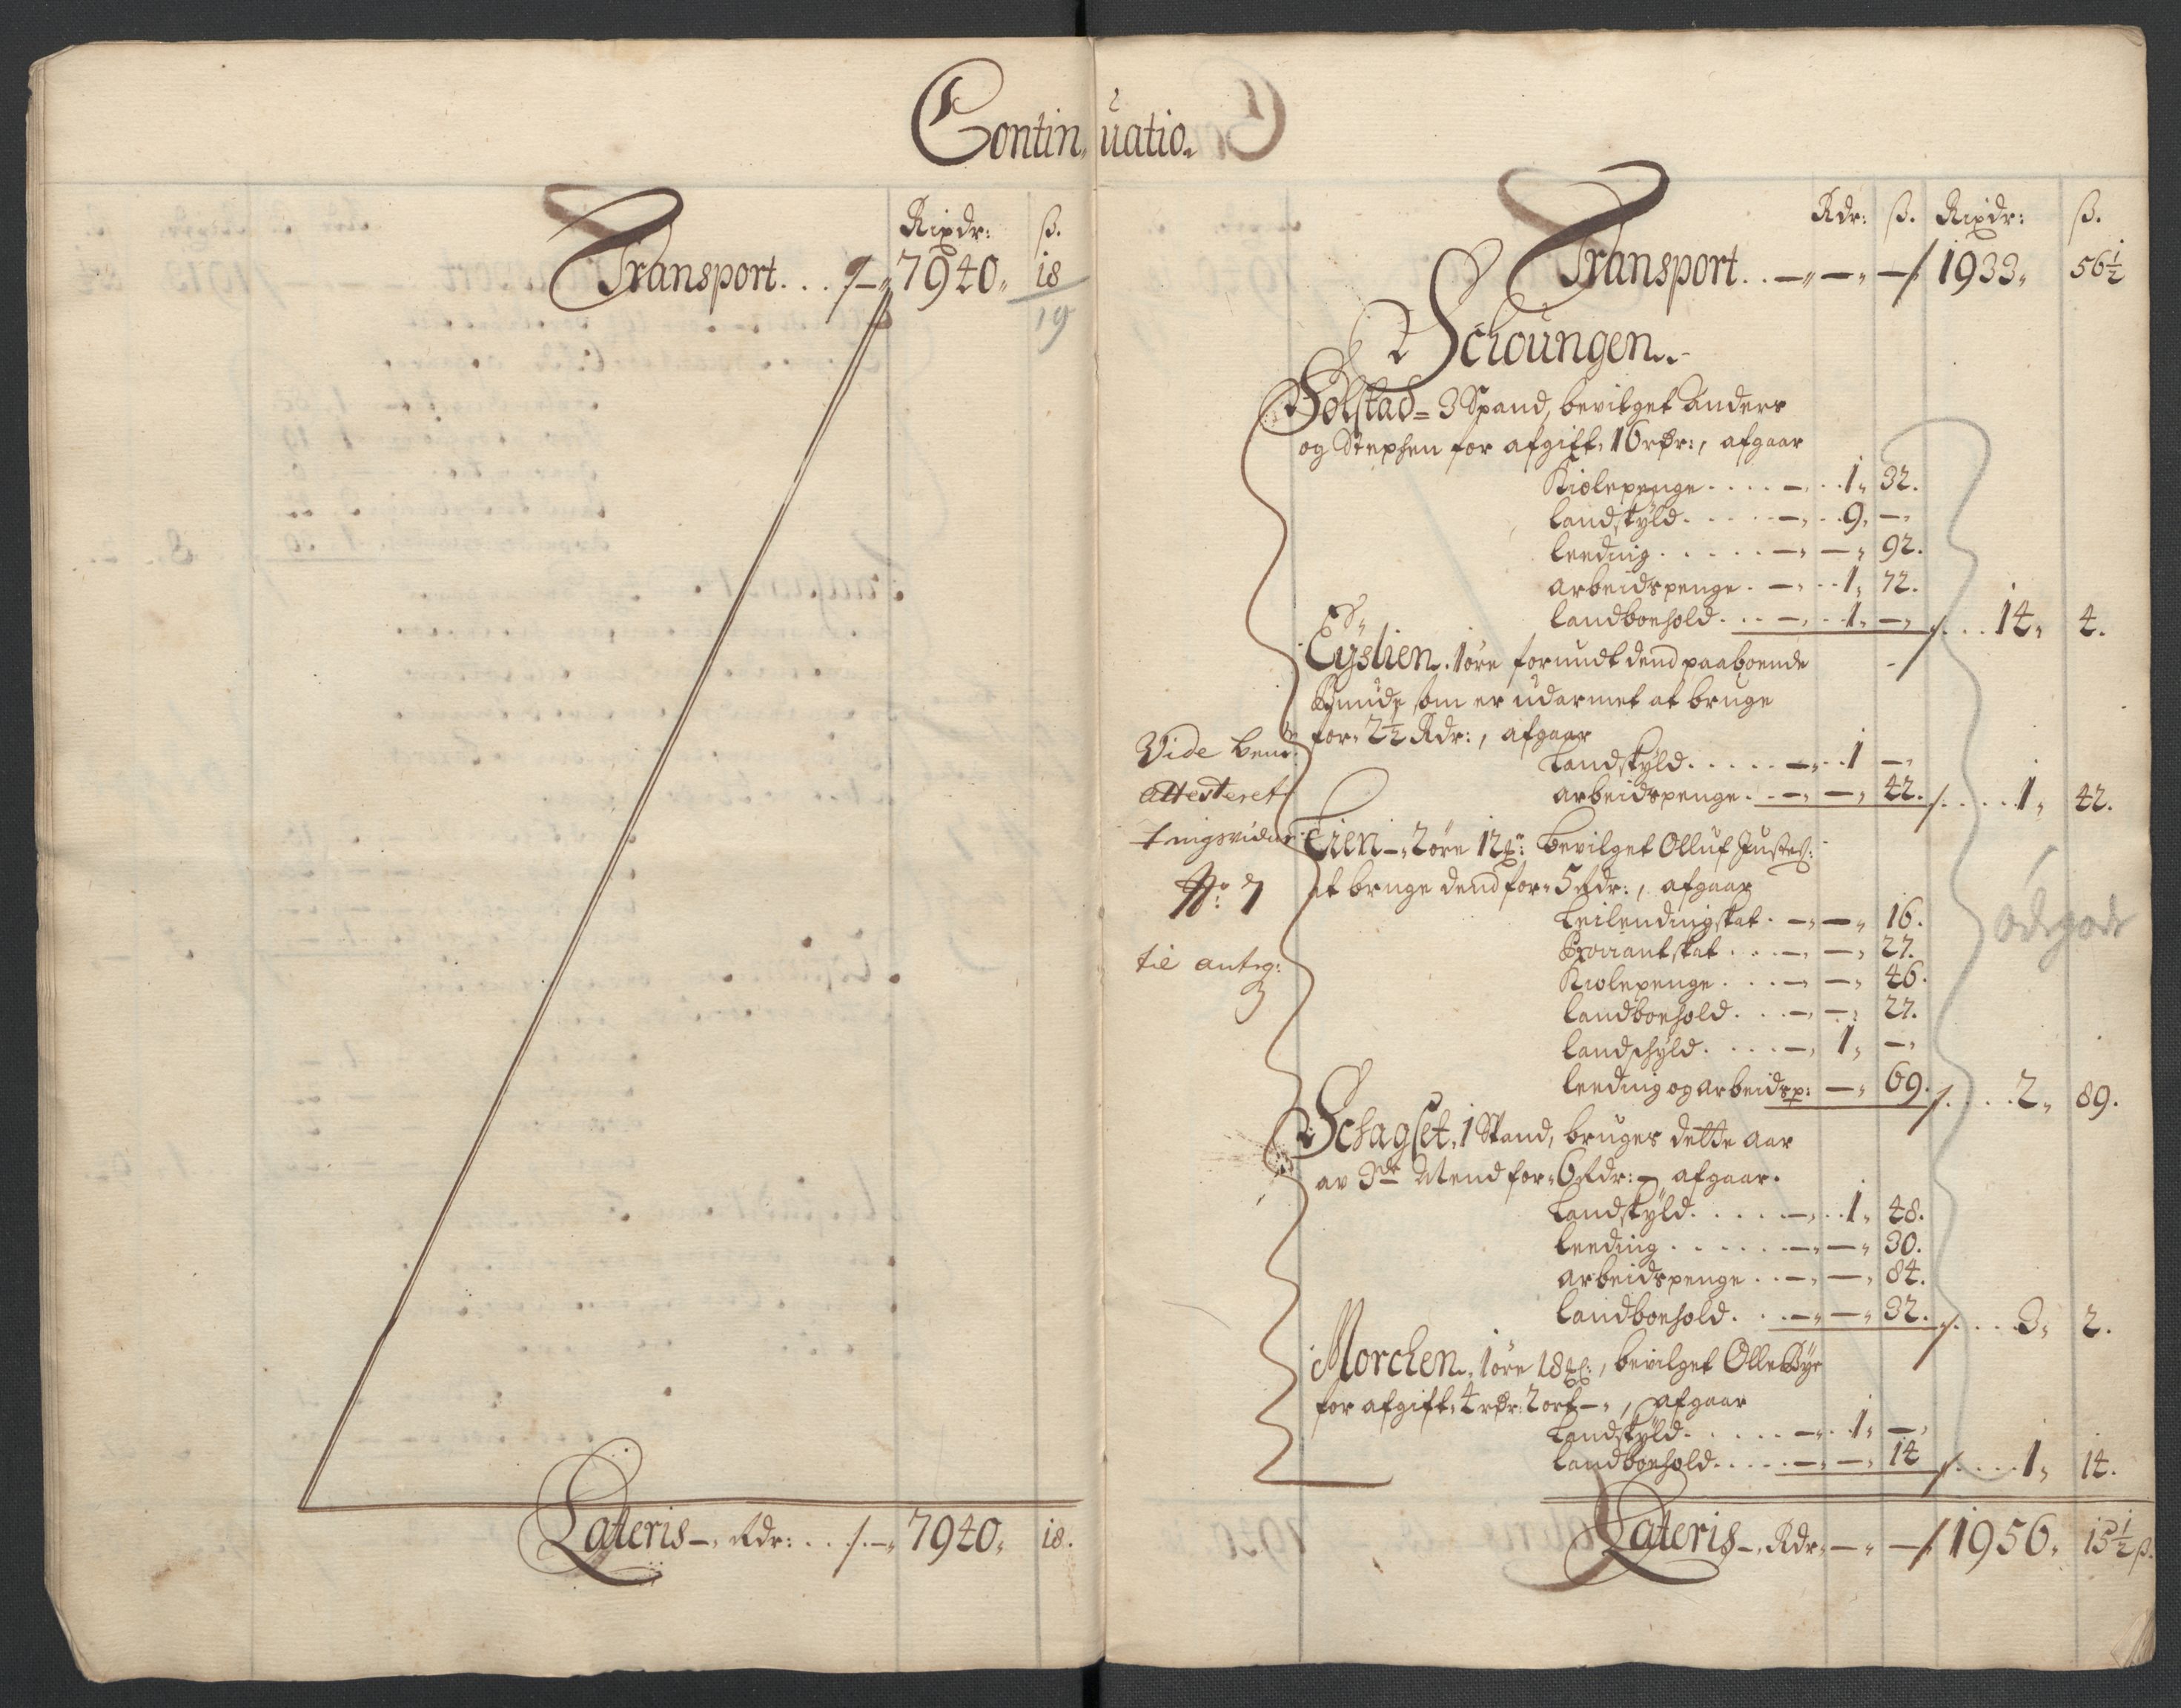 Continuatio.
Rixdr: ß.
Transport . . . /–„ 7940„ 18
19
Lateris –, Rdr: . . ./.–„ 7940„ 18.
Rdr: ß. Rixdr: ß.
Transport . . –„ –„ –/ 1933„ 56½
Schoungen.
Solstad – 3 Spand, bevilget Anders
og Stephen for afgift, 16 rdr:, afgaar
Kiolepenge . . . . –, . . 1„ 32.
landskyld . . . . –, . . 9„ –„
leeding . . . . . –„ –„ 92.
arbeidspenge . –, . . 1„ 72.
landboehold . . . –, . . 1„ –„ /. . . . 14„ 4.
Eyslien. 1 øre forundt dend paaboende
som er udarmet at bruge
for„ 2½ Rdr:, afgaar
Landskyld . . . . . –„ . . 1 –„
arbeidspenge . . –„ –„ 42. /. . . . . 1„ 42.
Vide ben:
attesteret
tingsvidne
No: 7
til antegn:
Lien –„ 2 øre 12 bevilget Olluf Justes:
at bruge dend for„ 5 Rdr:, afgaar
Leilendingskat . –„ –„ 16.
Proviantskat . . . –„ –„ 27.
Kiolepenge . . . –„ –„ 46.
landboehold . . . –„ –„ 27.
landschyld . . . . –„ 1„ –„
leeding og arbeidsp: –„ 69. /. . . . 2„ 89.
ødegods
Schagset, 1 Spand, bruges dette aar
av 3de Mend for„ 6 Rdr: –, afgaar.
Landskyld . . . . . –„ . . 1„ 48.
leeding . . . . . . –„ –„ 30.
arbeidspenge . . –„ –„ 84.
landboehold . . . –„ –„ 32. /. . . . 3„ 2.
Morchen, 1 øre 18 , bevilget Olle Bye
for afgift, 4 rdr: 2 ort –„, afgaar
Landskyld . . . . . –„ . 1„ –„
landboehold . . . . –„ –„ 14 /. . . . 1„ 14.
Lateris –, Rdr, –„ –/ 1956„ 15½ ß.